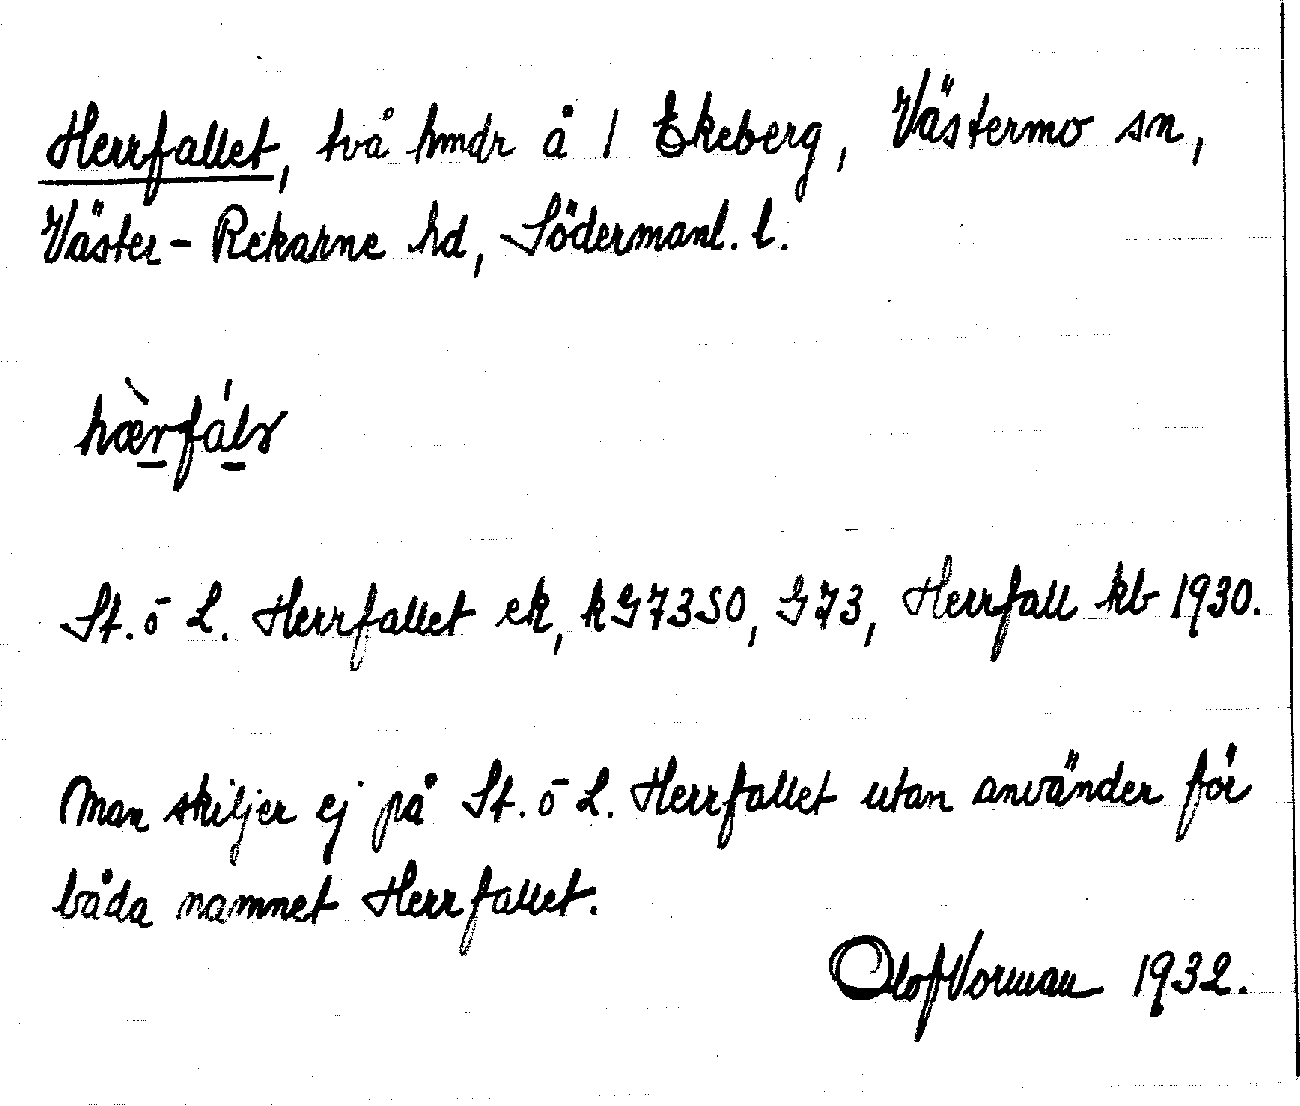 Herrfallet, två hmdr å 1 Ekeberg, Västermo sn,
Väster-Rekarne hd, Södermanl. l.
hærfáls
St. o L. Herrfallet ek, kG7350, G73, Herrfall kb 1930.
Man skiljer ej på St. o L. Herrfallet utan använder för
båda namnet Herrfallet.
Olof Vorman 1932.